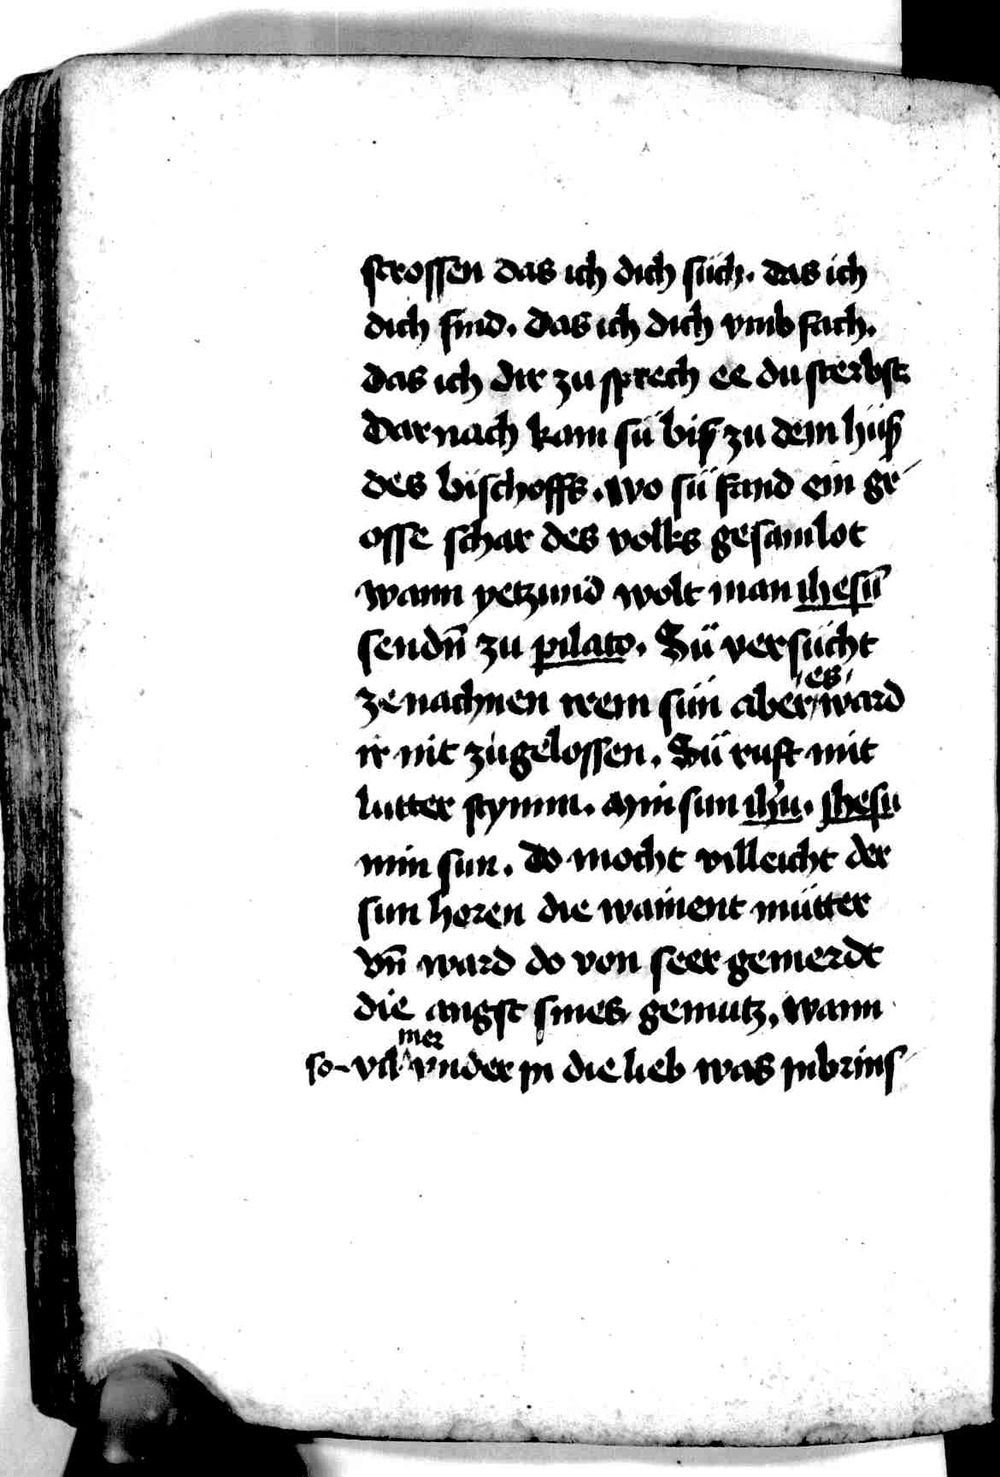 strossen das ich dich sůch. das ich
dich find. das ich dich vmb fach.
das ich dir zu sprech ee du sterbst
Darnach kam sü biß zu dem hůß
des bischoffs. wo sü fand ein gr
osse schar des volks gesamlot
wann yetzund wolt man ihesū
sendn̄ zu pilato. Sü versůcht
ze nachnen irem sün aber es ward
ir nit zůgelossen. Sü růft mit
lutter stymm. min sun ihū. ihesu
min sun. do mocht villeicht der
sun horen die wainent můtter
vn̄ ward do von seer gemerdt
die angst sines gemutz. wann
so vil mer vnder in die lieb was inbrins